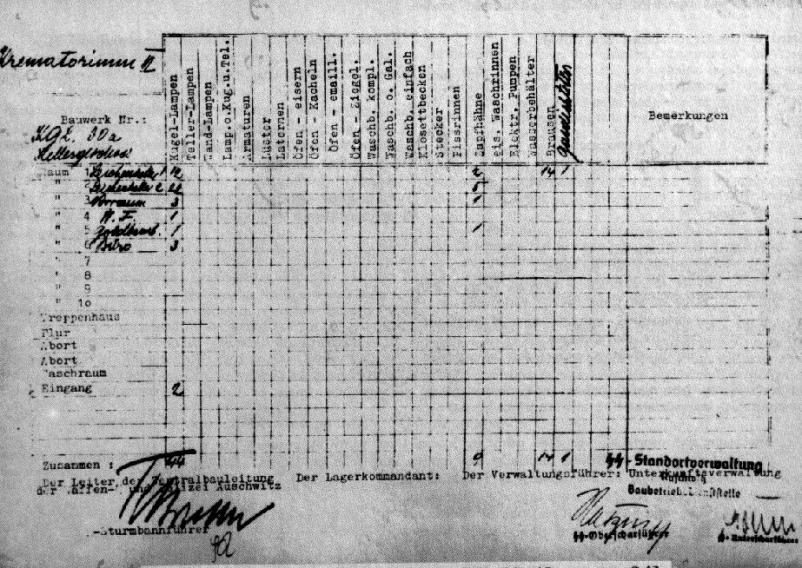 Krematorium II
Bauwerk Nr.:
KGL 30a
Kellergeschoss
Kugel-Lampen
Teller-Lampen
Hand-Lampen
Lamp.o.Kug.u.Tel.
Armaturen
Lüster
Laternen
Öfen - eisern
Öfen - Kacheln
Öfen - emaill.
Öfen - Ziegel.
Waschb. kompl.
Waschb. o. Gal.
Waschb. einfach
Klosettbecken
Stecker
Pissrinnen
Zapfhähne
eis. Waschrinnen
Elektr. Pumpen
Wasserbehälter
Brausen
Bemerkungen
Raum 1 Leichenkeller 1 12 2 14 1
" 2 Leichenkeller 2 5
" 3 Vorraum 3 1
" 4 1
" 5 Goldarb. 1 1
" 6 Büro 3
" 7
" 8
" 9
" 10
Treppenhaus
Flur
Abort
Abort
Waschraum
Eingang 2
Zusammen : 44 9 14 1
Der Leiter der Zentralbauleitung
der Waffen- und Polizei Auschwitz
-Sturmbannführer
Der Lagerkommandant:
Der Verwaltungsführer:
Unterkunftsverwaltung
-Standortverwaltung
Auschwitz
Baubetriebsdienststelle
-Oberscharführer
-Unterscharführer